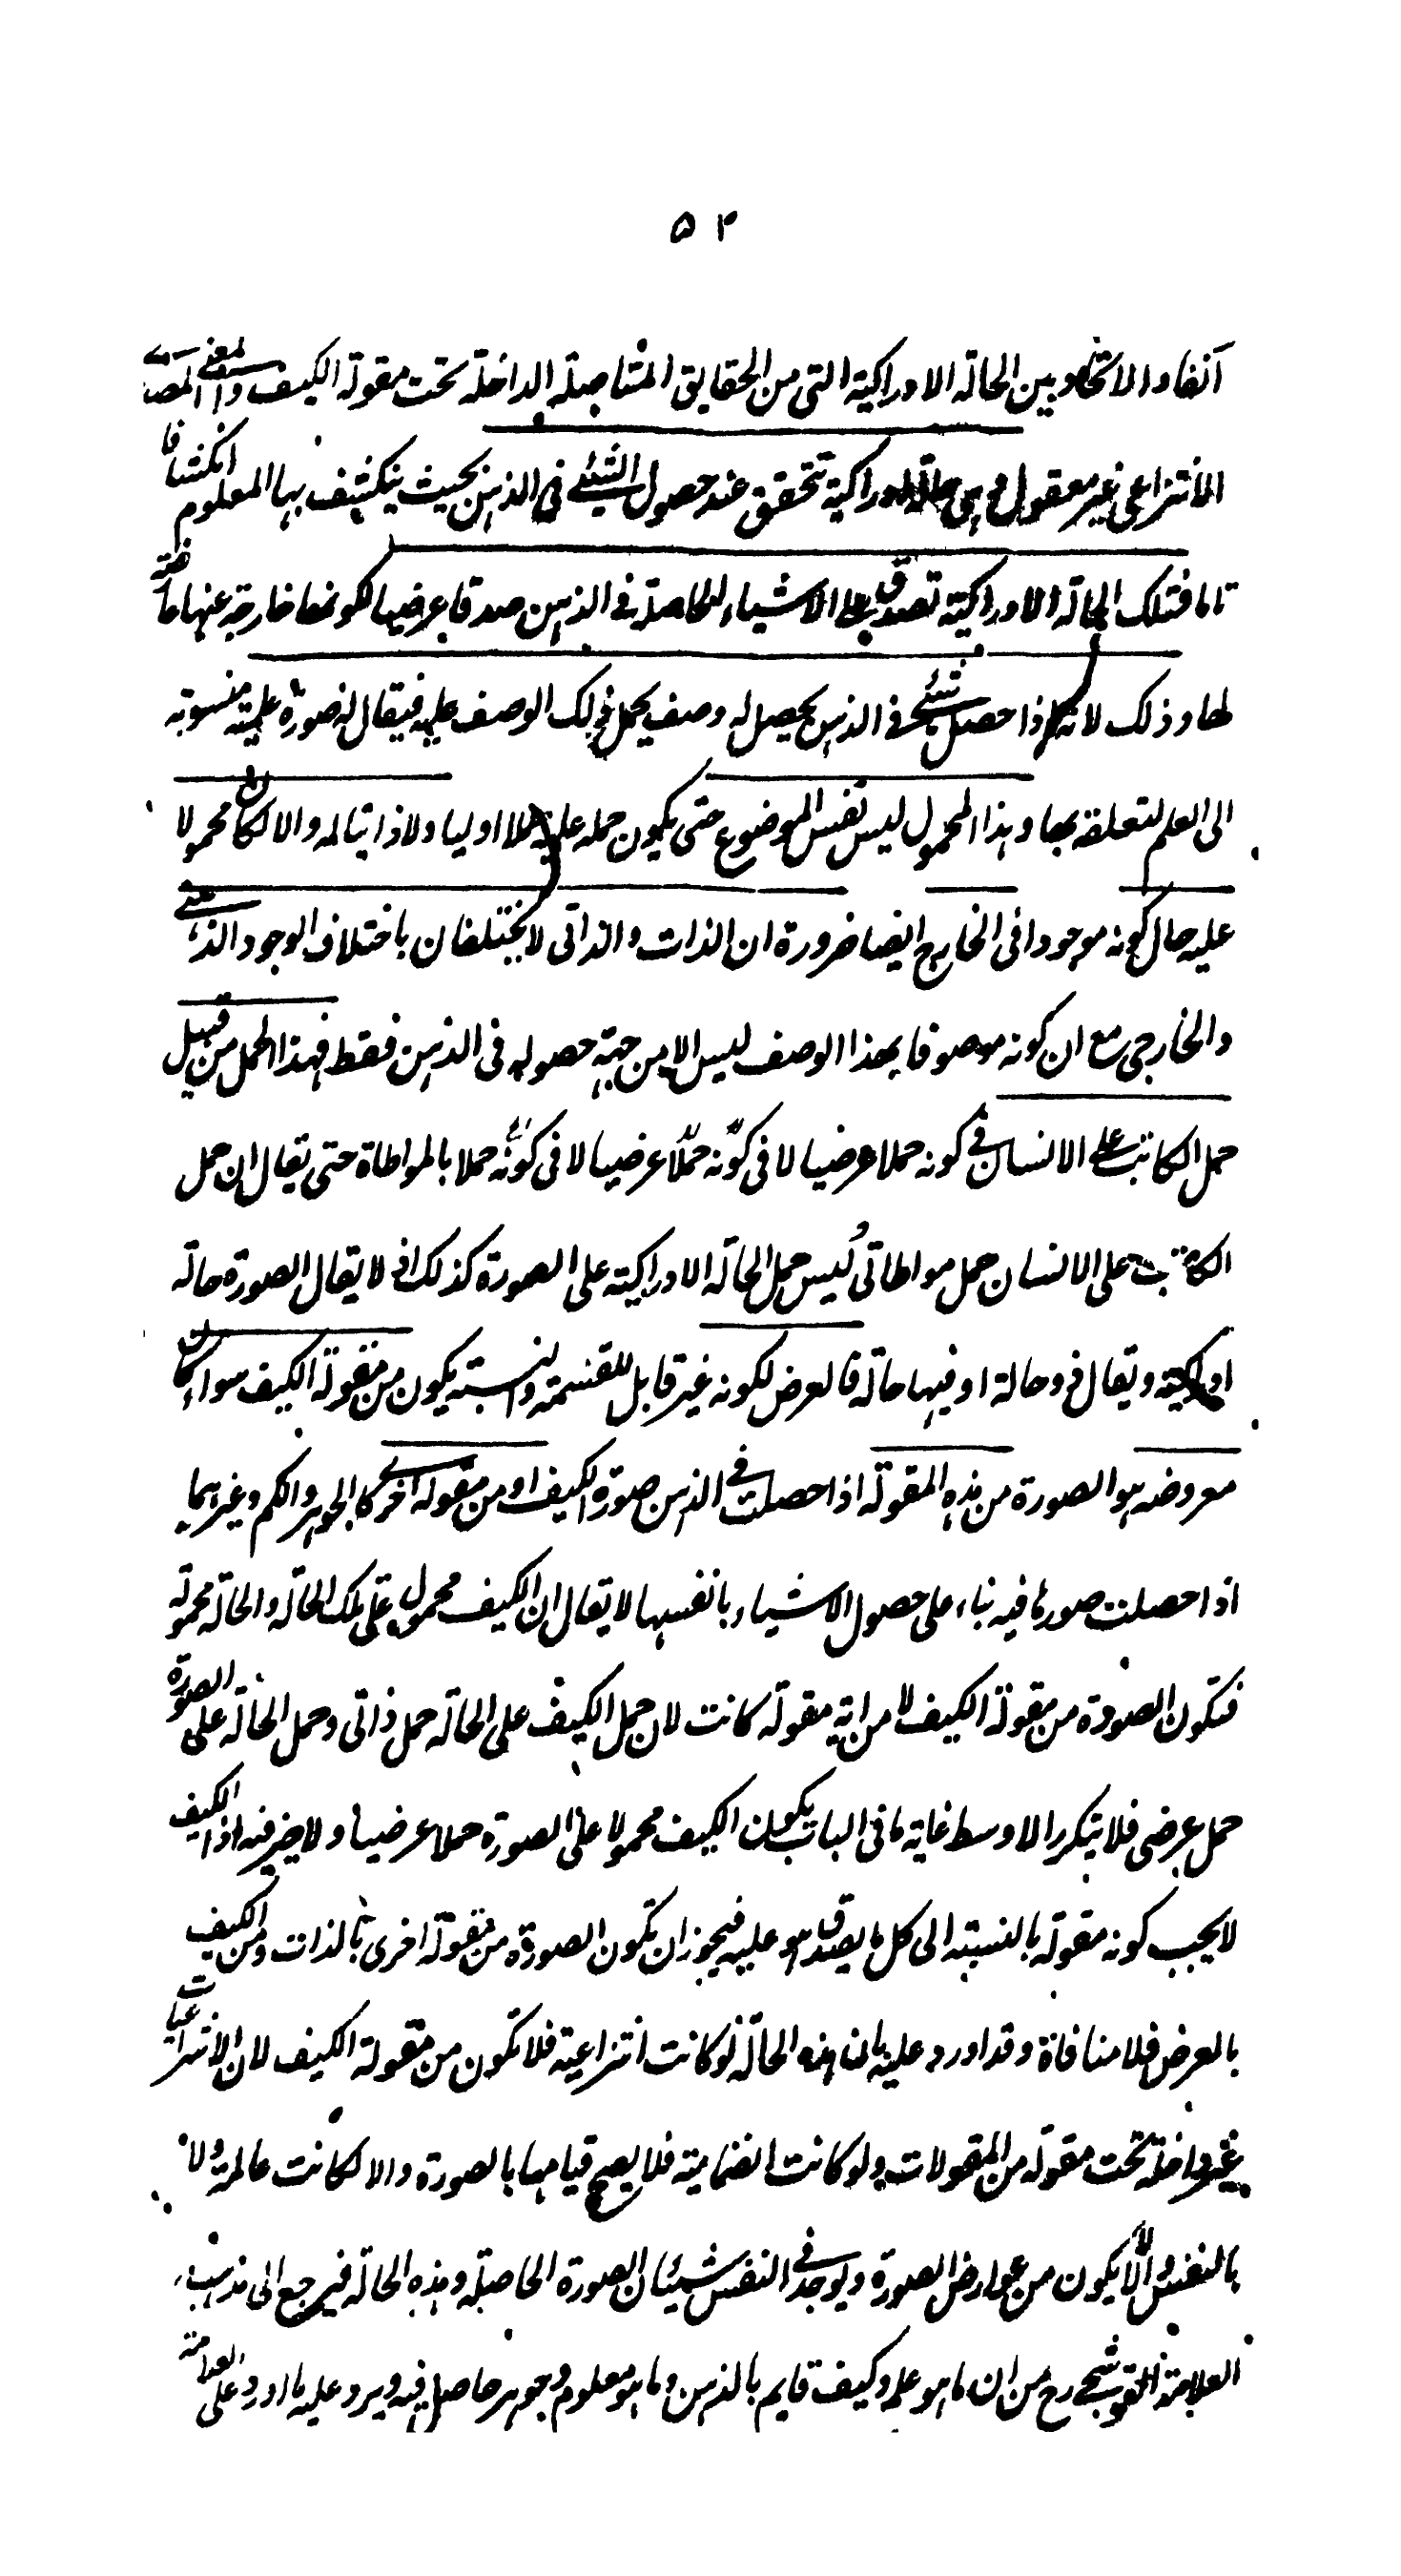 ۵۴
آنفا والاتحاد بين الحالة الادراكية التى من الحقايق المتاصلة الداخلة تحت مقولة الكيف والمعنى المصدرى
الانتزاعى غير معقول وهى حالة ادراكية تتحقق عند حصول الشيئ فى الذهن بحيث ينكشف بها المعلوم انكشافا
تاما فتلك الحالة الادراكية تصدق على الاشياء الحاصلة فى الذهن صدقا عرضيا لكونها خارجة عنها عارضة
لها وذلك لانه اذا حصل شيئ فى الذهن يحصل له وصف يحمل ذلك الوصف عليه فيقال له صورة علمية منسوبة
الى العلم لتعلقه بها وهذا المحمول ليس نفس الموضوع حتى يكون حمله عليه حملا اوليا ولا ذاتيا له والا لكان محمولا
عليه حال كونه موجودا فى الخارج ايضا ضرورة ان الذات والذاتى لا يختلفان باختلاف الوجود الذهنى
والخارجى مع ان كونه موصوفا بهذا الوصف ليس الا من جهة حصوله فى الذهن فقط فهذا الحمل من قبيل
حمل الكاتب على الانسان فى كونه حملا عرضيا لا فى كونه حملا عرضيا لا فى كونه حملا بالمواطاة حتى يقال ان حمل
الكاتب على الانسان حمل مواطاتى وليس حمل الحالة الادراكية على الصورة كذلك اذ لا يقال الصورة حالة
ادراكية ويقال ذو حالة او فيها حالة فالعرض لكونه غير قابل للقسمة والنسبة يكون من مقولة الكيف سواء كان
معروضه هو الصورة من هذه المقولة اذا حصلت فى الذهن صورة الكيف او من مقولة اخرى كالجوهر والكم وغيرهما
اذا حصلت صورها فيه بناء على حصول الاشياء بانفسها لا يقال ان الكيف محمول على تلك الحالة والحالة محمولة
فتكون الصورة من مقولة الكيف لا من اية مقولة كانت لان حمل الكيف على الحالة حمل ذاتى وحمل الحالة على الصورة
حمل عرضى فلا يتكرر الاوسط غاية ما فى الباب يكون الكيف محمولا على الصورة حملا عرضيا ولا ضير فيه اذ الكيف
لا يجب كونه مقولة بالنسبة الى كل ما يصدق هو عليه فيجوز ان تكون الصورة من مقولة اخرى بالذات ومن الكيف
بالعرض فلا منافاة وقد اورد عليه بان هذه الحالة لو كانت انتزاعية فلا تكون من مقولة الكيف لان الانتزاعيات
غير داخلة تحت مقولة من المقولات ولو كانت انضمامية فلا يصح قيامها بالصورة والا لكانت عالمة ولا
بالنفس والا لا يكون من عوارض الصورة ويوجد فى النفس شيئان الصورة الحاصلة وهذه الحالة فيرجع الى مذهب
العلامة القوشجى رح من ان ما هو علم وكيف قايم بالذهن وما هو معلوم وجوهر حاصل فيه ويرد عليه ما اورد على العلامة